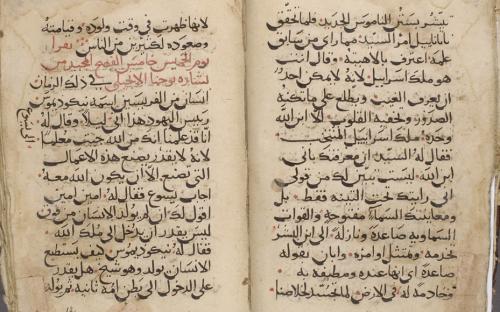 تبشر بسنن الناموس الجديد فلما تحقق
ناثانايل امر السيد مما راى من سابق
علمه اعترف بالاهيته وقال انت
هو ملك اسراييل لانه لا يمكن احد
ان يعرف الغيب ويطلع على ما تكنه
الصدور وتخفيه القلوب الا ابن الله
وحده ملك اسراييل المنتخب
فقال له السيد ان معرفتك باني
ابن الله ليست تبين لك من قولي
اني رايتك تحت التينه فقط بل
ومعاينتك السما مفتوحه والقوات
السماويه صاعده ونازله الى ابن البشر
تخدمه وتمتثل اوامره وابان بقوله
صاعده اي انها عنده ومطيفه به
وخادمه له في الارض لما تجسد لخلاصنا
لانها ظهرت في وقت ولوده وقيامته
وصعوده لكثيرين من الناس يقرا
يوم الخميس خامس الفصح المجيد من
بشاره يوحنا الانجيلي في ذلك الزمان
انسان من الفريسيين اسمه نيكوديموس
رييس اليهود هذا اتى ليلا وقال له
الى يسوع
انا قد علمنا انك من الله جيت معلما
لانه لا يقدر يصنع هذه الاعمال
التي تصنع الا ان يكون الله معه
اجاب يسوع فقال له امين امين
اقول لك ان لم يولد الانسان من فوق
ليس يقدر ان يدخل الى ملك الله
فقال له نيكوديموس كيف يستطيع
الانسان يولد وهو شيخ هل يقدر
على الدخول الى بطن امه ثانيه ثم يولد